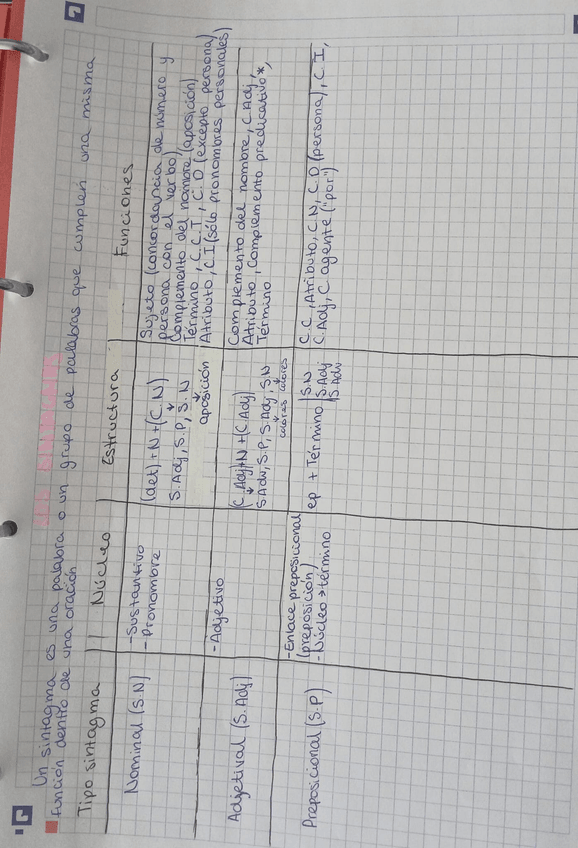 LOS SINTAGMAS
Un sintagma es una palabra o un grupo de palabras que cumplen una misma
función dentro de una oración
Tipo sintagma
Núcleo
Estructura
Funciones
Nominal (S.N)
-Sustantivo
-Pronombre
(det) + N + (C.N)
S.Adj, S.P, S.N
aposición
Sujeto (concordancia de número y
persona con el verbo)
Complemento del nombre (aposición)
Término, C.C.T, C.D (excepto persona)
Atributo, CI (sólo pronombres personales)
Adjetival (S.Adj)
-Adjetivo
(C.Adj)+N+(C.Adj)
S.Adv, S.P, S.Adj, S.N
colores colores
Complemento del nombre, C Adj,
Atributo, Complemento predicativo*,
Término
Preposicional (S.P)
-Enlace preposicional
(preposición)
-Núcleo→término
ep + Término
S.N
S.Adj
S.Adv
C.C, Atributo, C.N, C.D (persona), C I,
C.Adj, C agente ("por")